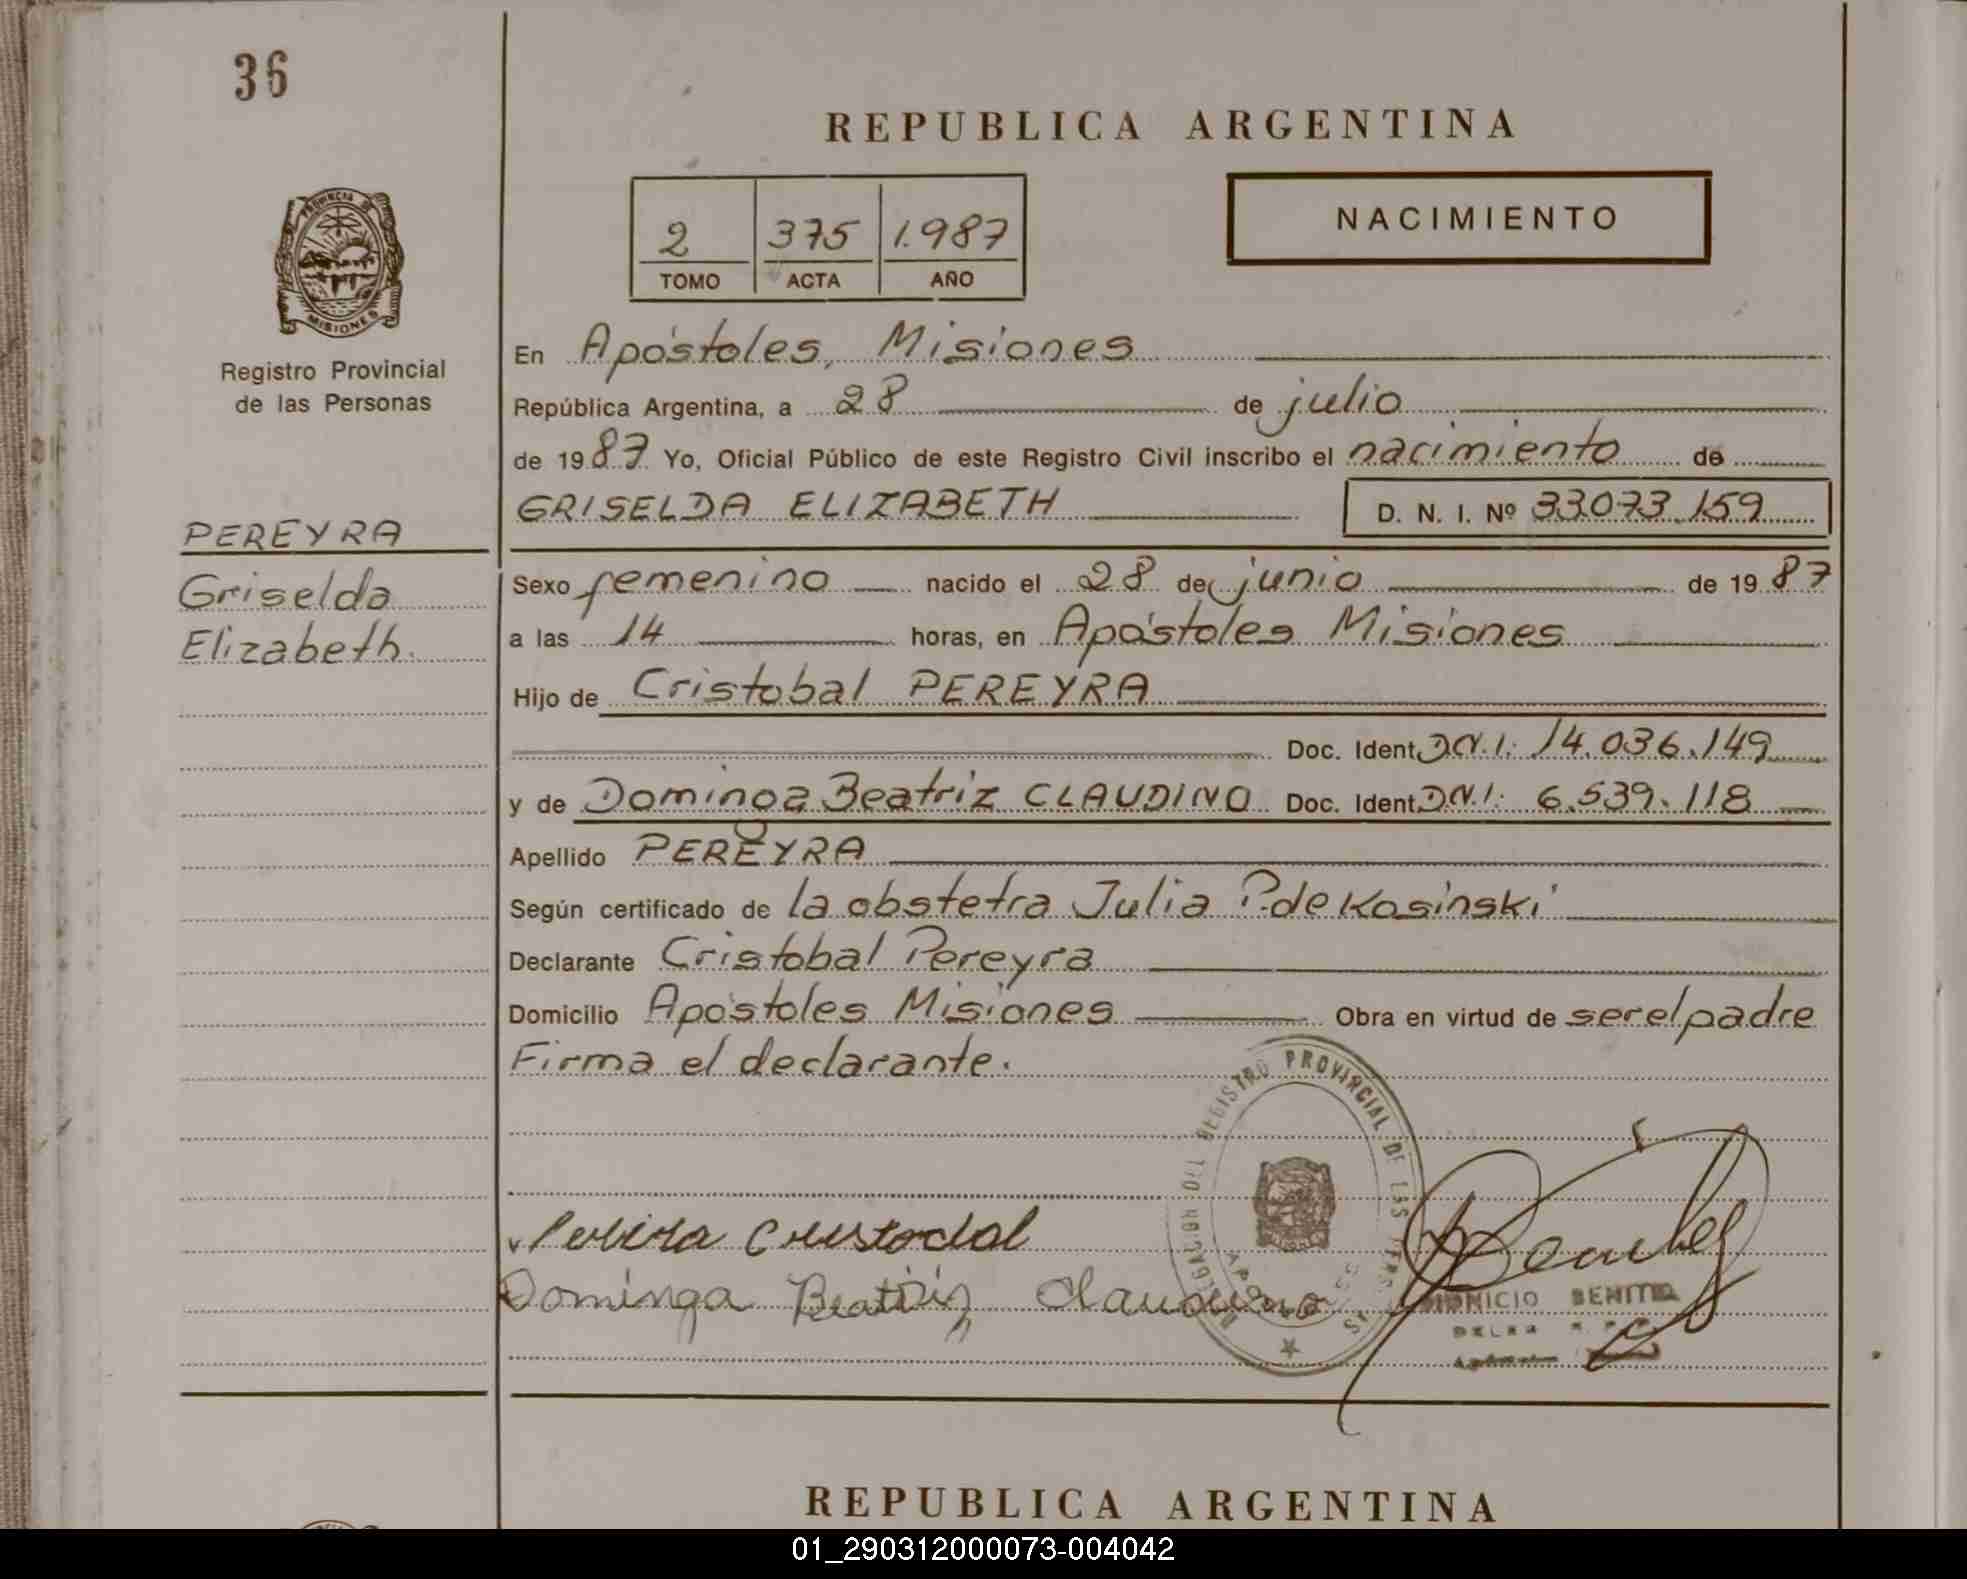 36
REPUBLICA ARGENTINA
2 375 1.987
TOMO ACTA AÑO
NACIMIENTO
PROVINCIA DE
MISIONES
Registro Provincial
de las Personas
En Apóstoles, Misiones
República Argentina, a 28 de julio
de 1987 Yo, Oficial Público de este Registro Civil inscribo el nacimiento de
GRISELDA ELIZABETH D. N. I. Nº 33.073.159
PEREYRA
Griselda
Elizabeth.
Sexo femenino nacido el 28 de junio de 1987
a las 14 horas, en Apóstoles Misiones
Hijo de Cristobal PEREYRA
Doc. Ident D.N.I.: 14.036.149
y de Dominga Beatriz CLAUDINO Doc. Ident D.N.I: 6.539.118
Apellido PEREYRA
Según certificado de la obstetra Julia P. de Kosinski
Declarante Cristobal Pereyra
Domicilio Apóstoles Misiones Obra en virtud de ser el padre
Firma el declarante.
DELEGACION DEL REGISTRO PROVINCIAL DE LAS PERSONAS
Dominga Beatriz Claudino
DIONICIO BENITEZ
REPUBLICA ARGENTINA
01_290312000073-004042